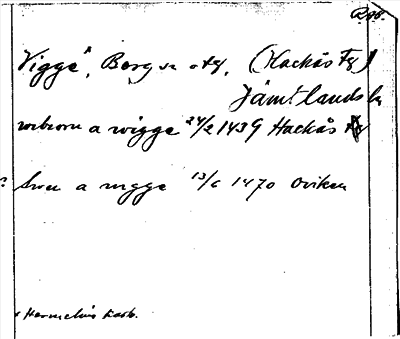 Rgb.
Vigge, Berg sn o tg, (Hackås tg)
Jämtlands l.
 a wigge 24/2 1439 Hackås tg
? Swen a wigge 13/6 1470 Oviken
Hermelins karta.